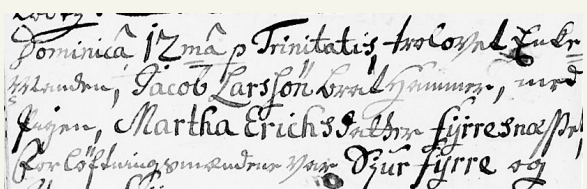 Dominicâ 12 mâ p Trinitatis, trolovet Enke-
Manden, Jacob Larssøn Hammer, med
Pigen, Martha Erichsdatter fyrresnæsset
Forløftningsmændene var Siur fyrre og